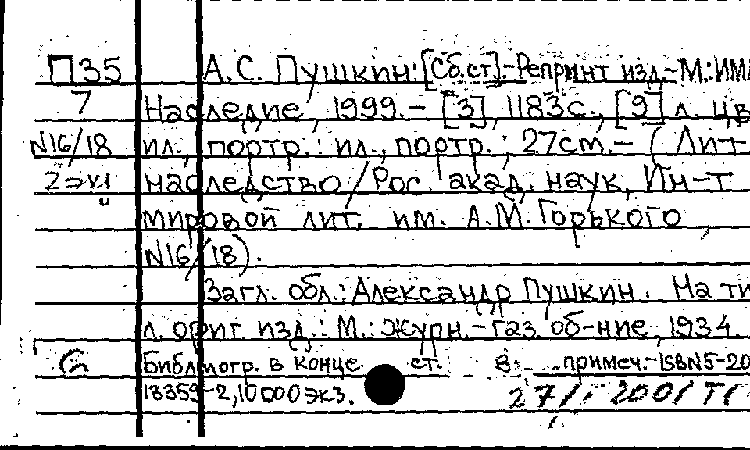 П35 А.С. Пушкин: [Сб.ст].-Репринт изд.-М.:ИМЛ
7 Наследие, 1999.- [3], 1183с., [9] л. цв
N16/18 ил., портр.: ил., портр.; 27см.- (Лит
2экз наследство/Рос. акад. наук, Ин-т
мировой лит. им. А.М.Горького
N16/18).
Загл. обл.: Александр Пушкин. На ти
л. ориг. изд.: М.: Журн.-газ. об-ние, 1934
Библиогр. в конце ст. в примеч.-ISBN5-20
18359-2, 10000экз. 27/I 2001